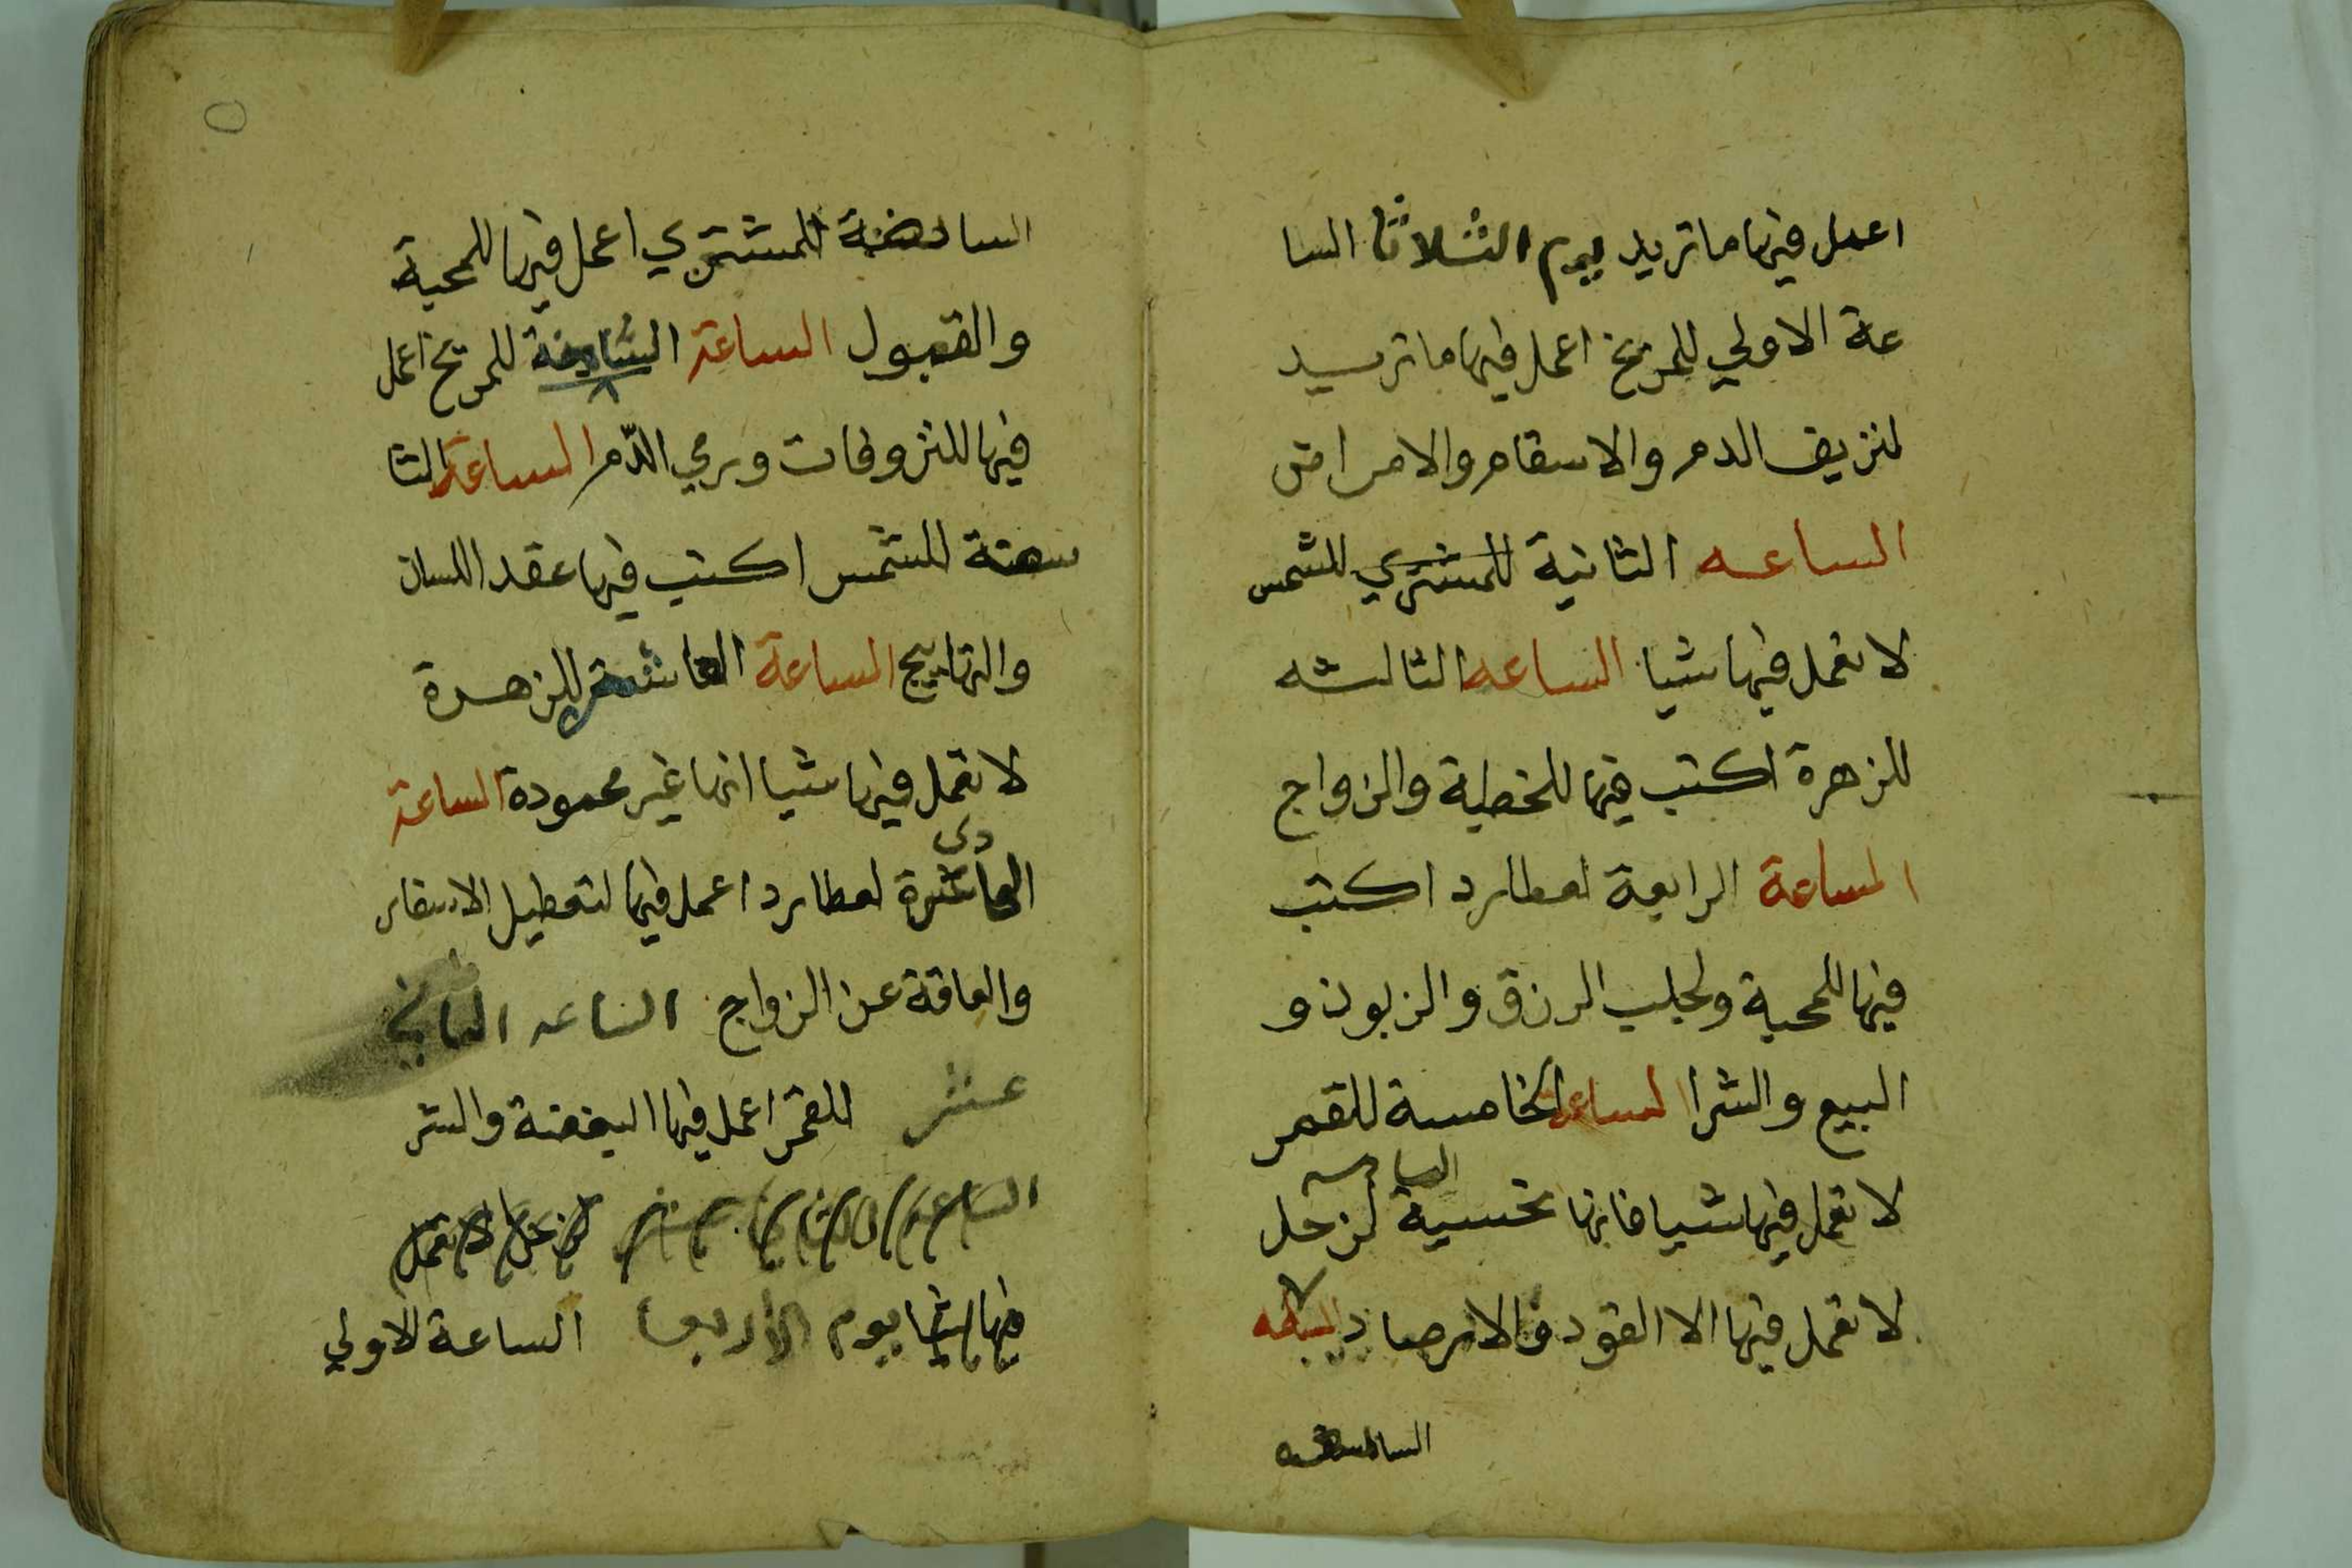 اعمل فيها ما تريد يوم الثلاثا السا
عة الاولي للمريخ اعمل فيها ما تريد
لنزيف الدم والاسقام والامراض
الساعه الثانية للمشتري للشمس
لا تعمل فيها شيا الساعه الثالثه
للزهرة اكتب فيها للخطبة والزواج
الساعة الرابعة لعطارد اكتب
فيها للمحبة ولجلب الرزق والزبون و
البيع والشرا الساعة الخامسة للقمر
لا تعمل فيها شيا فانها نحسية السادسه لزحل
لا تعمل فيها الا العقود والارصاد
للمشتري اعمل فيها للمحبة
والقبول الساعة للمريخ اعمل
فيها للنزوفات ورمي الدم الساعة التا
للشمس اكتب فيها عقد اللسان
والتهاييج الساعة للزهرة
لا تعمل فيها شيا انها غير محمودة الساعة
لعطارد اعمل فيها لتعطيل الاسفار
والعاقة عن الزواج الساعه الثاني
عشر للقمر اعمل فيها البغضة والشر
الساعة لزحل لا تعمل
فيها شيا يوم الأربعا الساعة الاولي